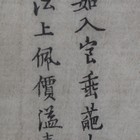 如入官垂葩
法上佩價溢